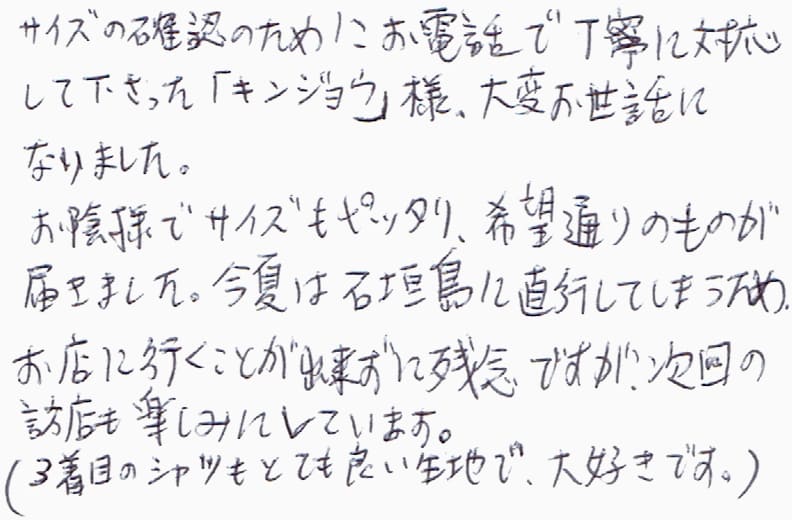 サイズの確認のために お電話で丁寧に対応
して下さった「キンジョウ」様、大変お世話に
なりました。
お陰様でサイズもピッタリ、希望通りのものが
届きました。今夏は石垣島に直行してしまうため、
お店に行くことが出来ずに残念ですが、次回の
訪店も楽しみにしています。
(3着目のシャツもとても良い生地で、大好きです。)